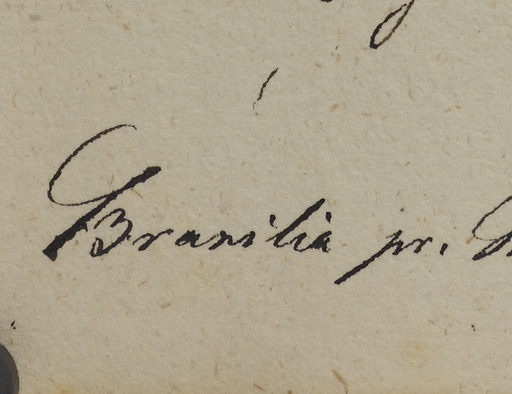 Brasilia pr.